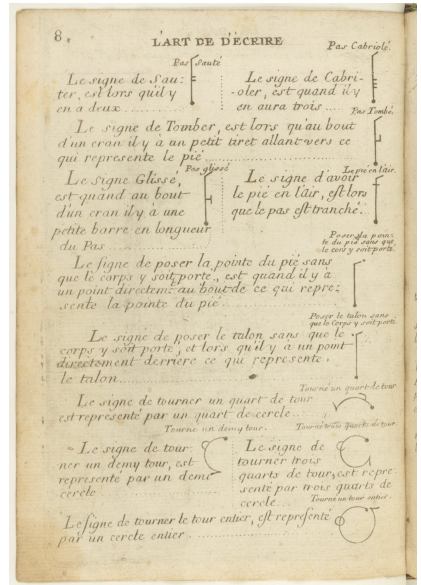 8.
L'ART DE D'ÉCRIRE
Pas Sauté
Le signe de Sau:
ter, est lors qu'il y
en a deux
Pas Cabriolé.
Le signe de Cabri-
-oler, est quand il y
en aura trois
Pas Tombé.
Le signe de Tomber, est lors qu'au bout
d'un cran il y à un petit tiret allant vers ce
qui represente le pié
Pas glissé
Le Signe Glissé,
est quand au bout
d'un cran il y à une
petite barre en longueur
du Pas
Le pie en l'air.
Le signe d'avoir
le pie en l'air, est lors
que le pas est tranché.
Poser la poin-
te du pié sans que
le corps y soit porté.
Le signe de poser la pointe du pié sans
que le corps y soit porté, est quand il y à
un point directemt. au bout de ce qui repre:
sente la pointe du pié
Poser le talon sans
que le Corps y soit porté.
Le signe de poser le talon sans que le
corps y soit porté, et lors qu'il y à un point
directement derriere ce qui represente
le talon
Tourné un quart de tour
Le signe de tourner un quart de tour
est representé par un quart de cercle
Tourné un demy tour.
Le signe de tour:
ner un demy tour, est
representé par un demi
cercle
Tourné trois quarts de tour.
Le signe de
tourner trois
quarts de tour, est repre:
senté par trois quarts de
cercle
Tourné un tour entier.
Le signe de tourner le tour entier, est representé
par un cercle entier